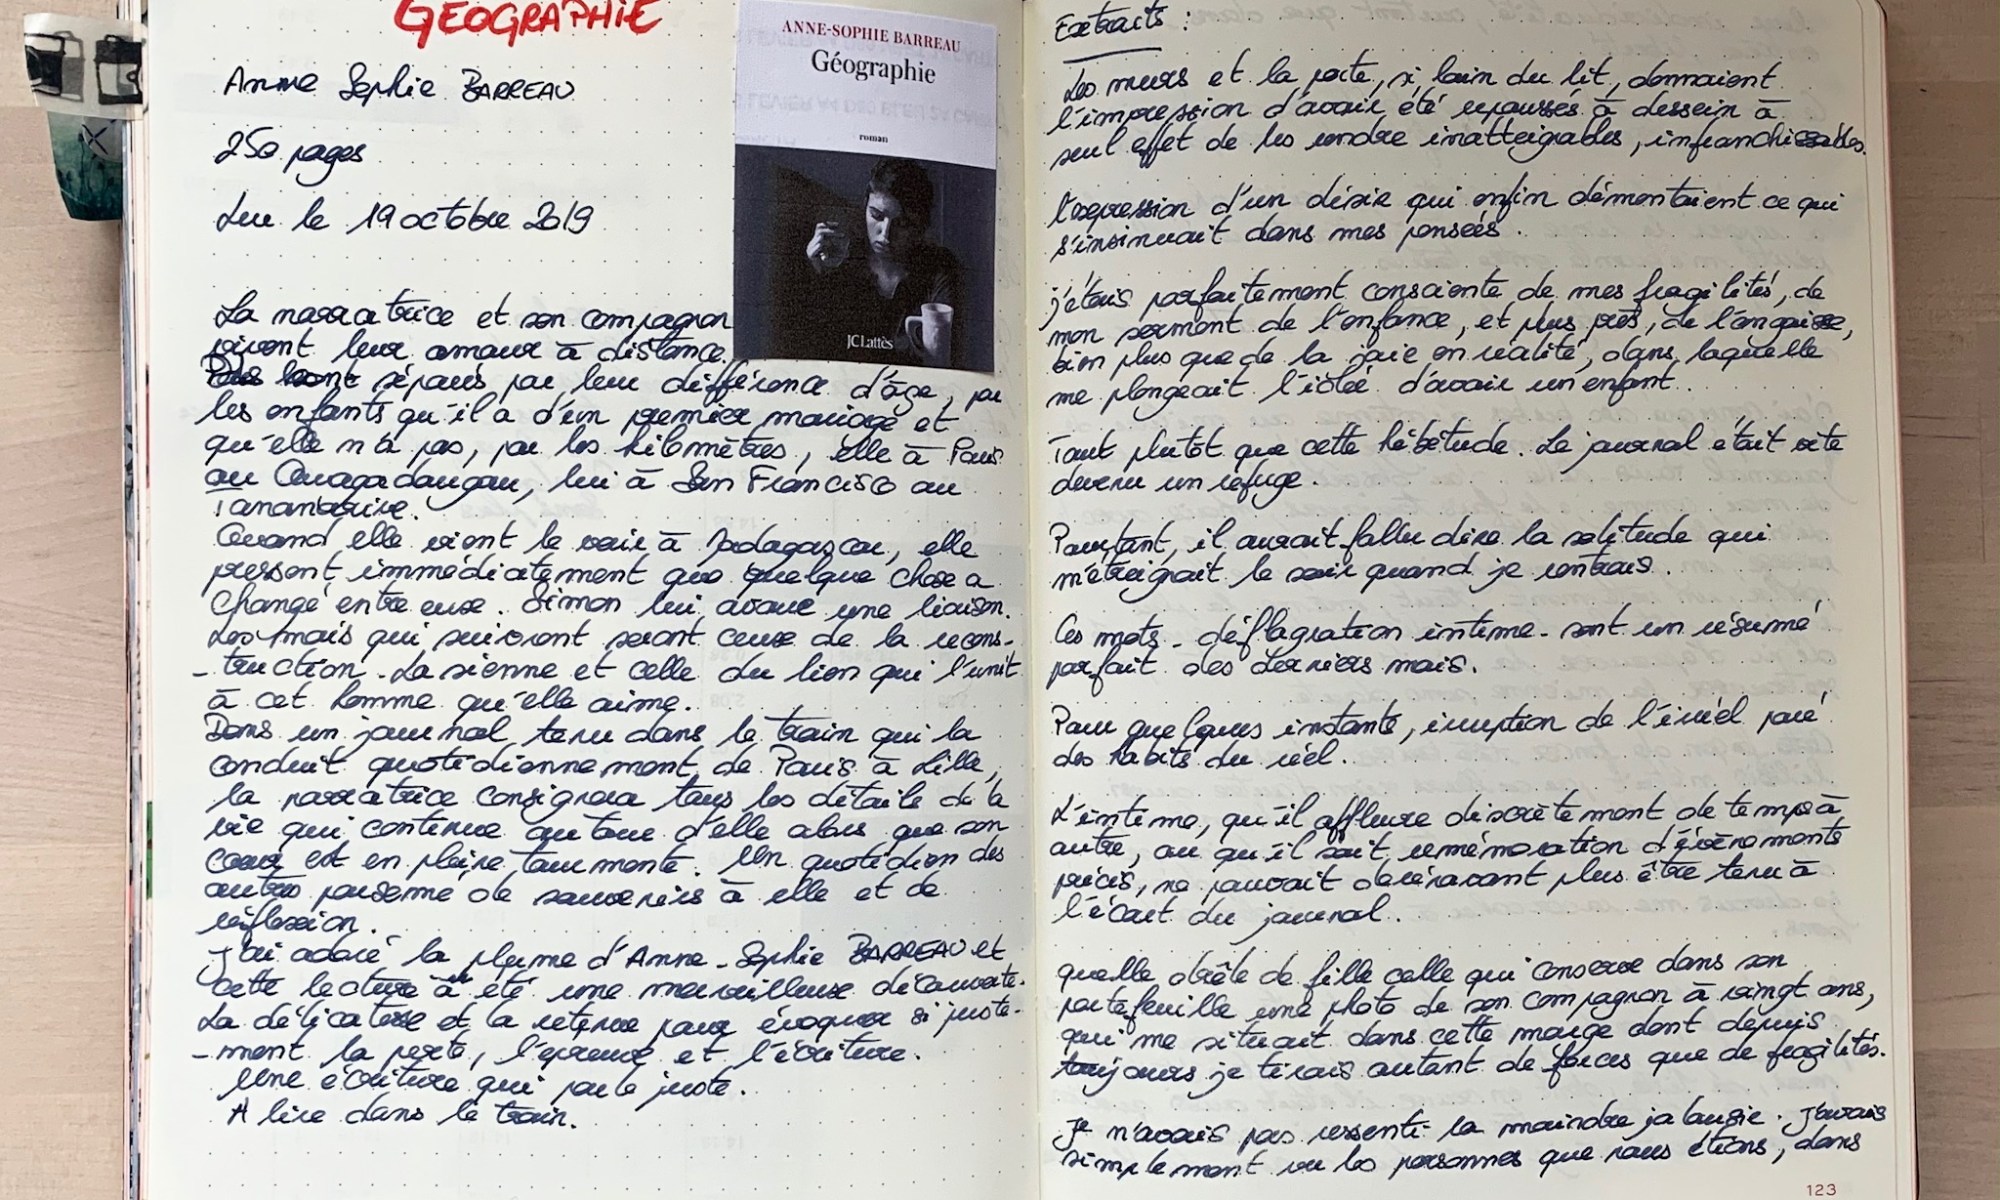 GÉOGRAPHIE
Anne Sophie BARREAU
250 pages
Lu le 19 octobre 2019
ANNE-SOPHIE BARREAU
Géographie
roman
JC Lattès
La narratrice et son compagnon
vivent leur amour à distance.
séparés par leur différence d'âge, par
les enfants qu'il a d'un premier mariage et
qu'elle n'a pas, par les kilomètres, elle à Paris
ou Ouagadougou, lui à San Francisco ou
Tananarive.
Quand elle vient le voir à Madagascar, elle
pressent immédiatement que quelque chose a
changé entre eux. Simon lui avoue une liaison.
Les mois qui suivront seront ceux de la recons-
-truction. La sienne et celle du lien qui l'unit
à cet homme qu'elle aime.
Dans un journal tenu dans le train qui la
conduit quotidiennement de Paris à Lille,
la narratrice consignera tous les détails de la
vie qui continue autour d'elle alors que son
coeur est en pleine tourmente. Un quotidien des
autres parsemé de souvenirs à elle et de
réflexion.
J'ai adoré la plume d'Anne-Sophie BARREAU et
cette lecture a été une merveilleuse découverte.
La délicatesse et la retenue pour évoquer si juste-
-ment la perte, l'épreuve et l'écriture.
Une écriture qui parle juste.
A lire dans le train.
Extraits :
Les murs et la porte, si loin du lit, donnaient
l'impression d'avoir été repoussés à dessein à
seul effet de les rendre inatteignables, infranchissables.
l'expression d'un désir qui enfin démontaient ce qui
s'insinuait dans mes pensées.
j'étais parfaitement consciente de mes fragilités, de
mon serment de l'enfance, et plus près, de l'angoisse,
bien plus que de la joie en réalité, dans laquelle
me plongeait l'idée d'avoir un enfant.
Tout plutôt que cette hébétude. Le journal était vite
devenu un refuge.
Pourtant, il aurait fallu dire la solitude qui
m'étreignait le soir quand je rentrais.
Ces mots - déflagration intime - sont un résumé
parfait des derniers mois.
Pour quelques instants, irruption de l'irréel paré
des habits du réel.
L'intime, qu'il affleure discrètement de temps à
autre, ou qu'il soit remémoration d'évènements
précis, ne pouvait dorénavant plus être tenu à
l'écart du journal.
quelle drôle de fille celle qui conserve dans son
portefeuille une photo de son compagnon à vingt ans,
qui me situait dans cette marge dont depuis
toujours je tirais autant de forces que de fragilités.
Je n'avais pas ressenti la moindre jalousie. J'avais
simplement vu les personnes que nous étions, dans
123